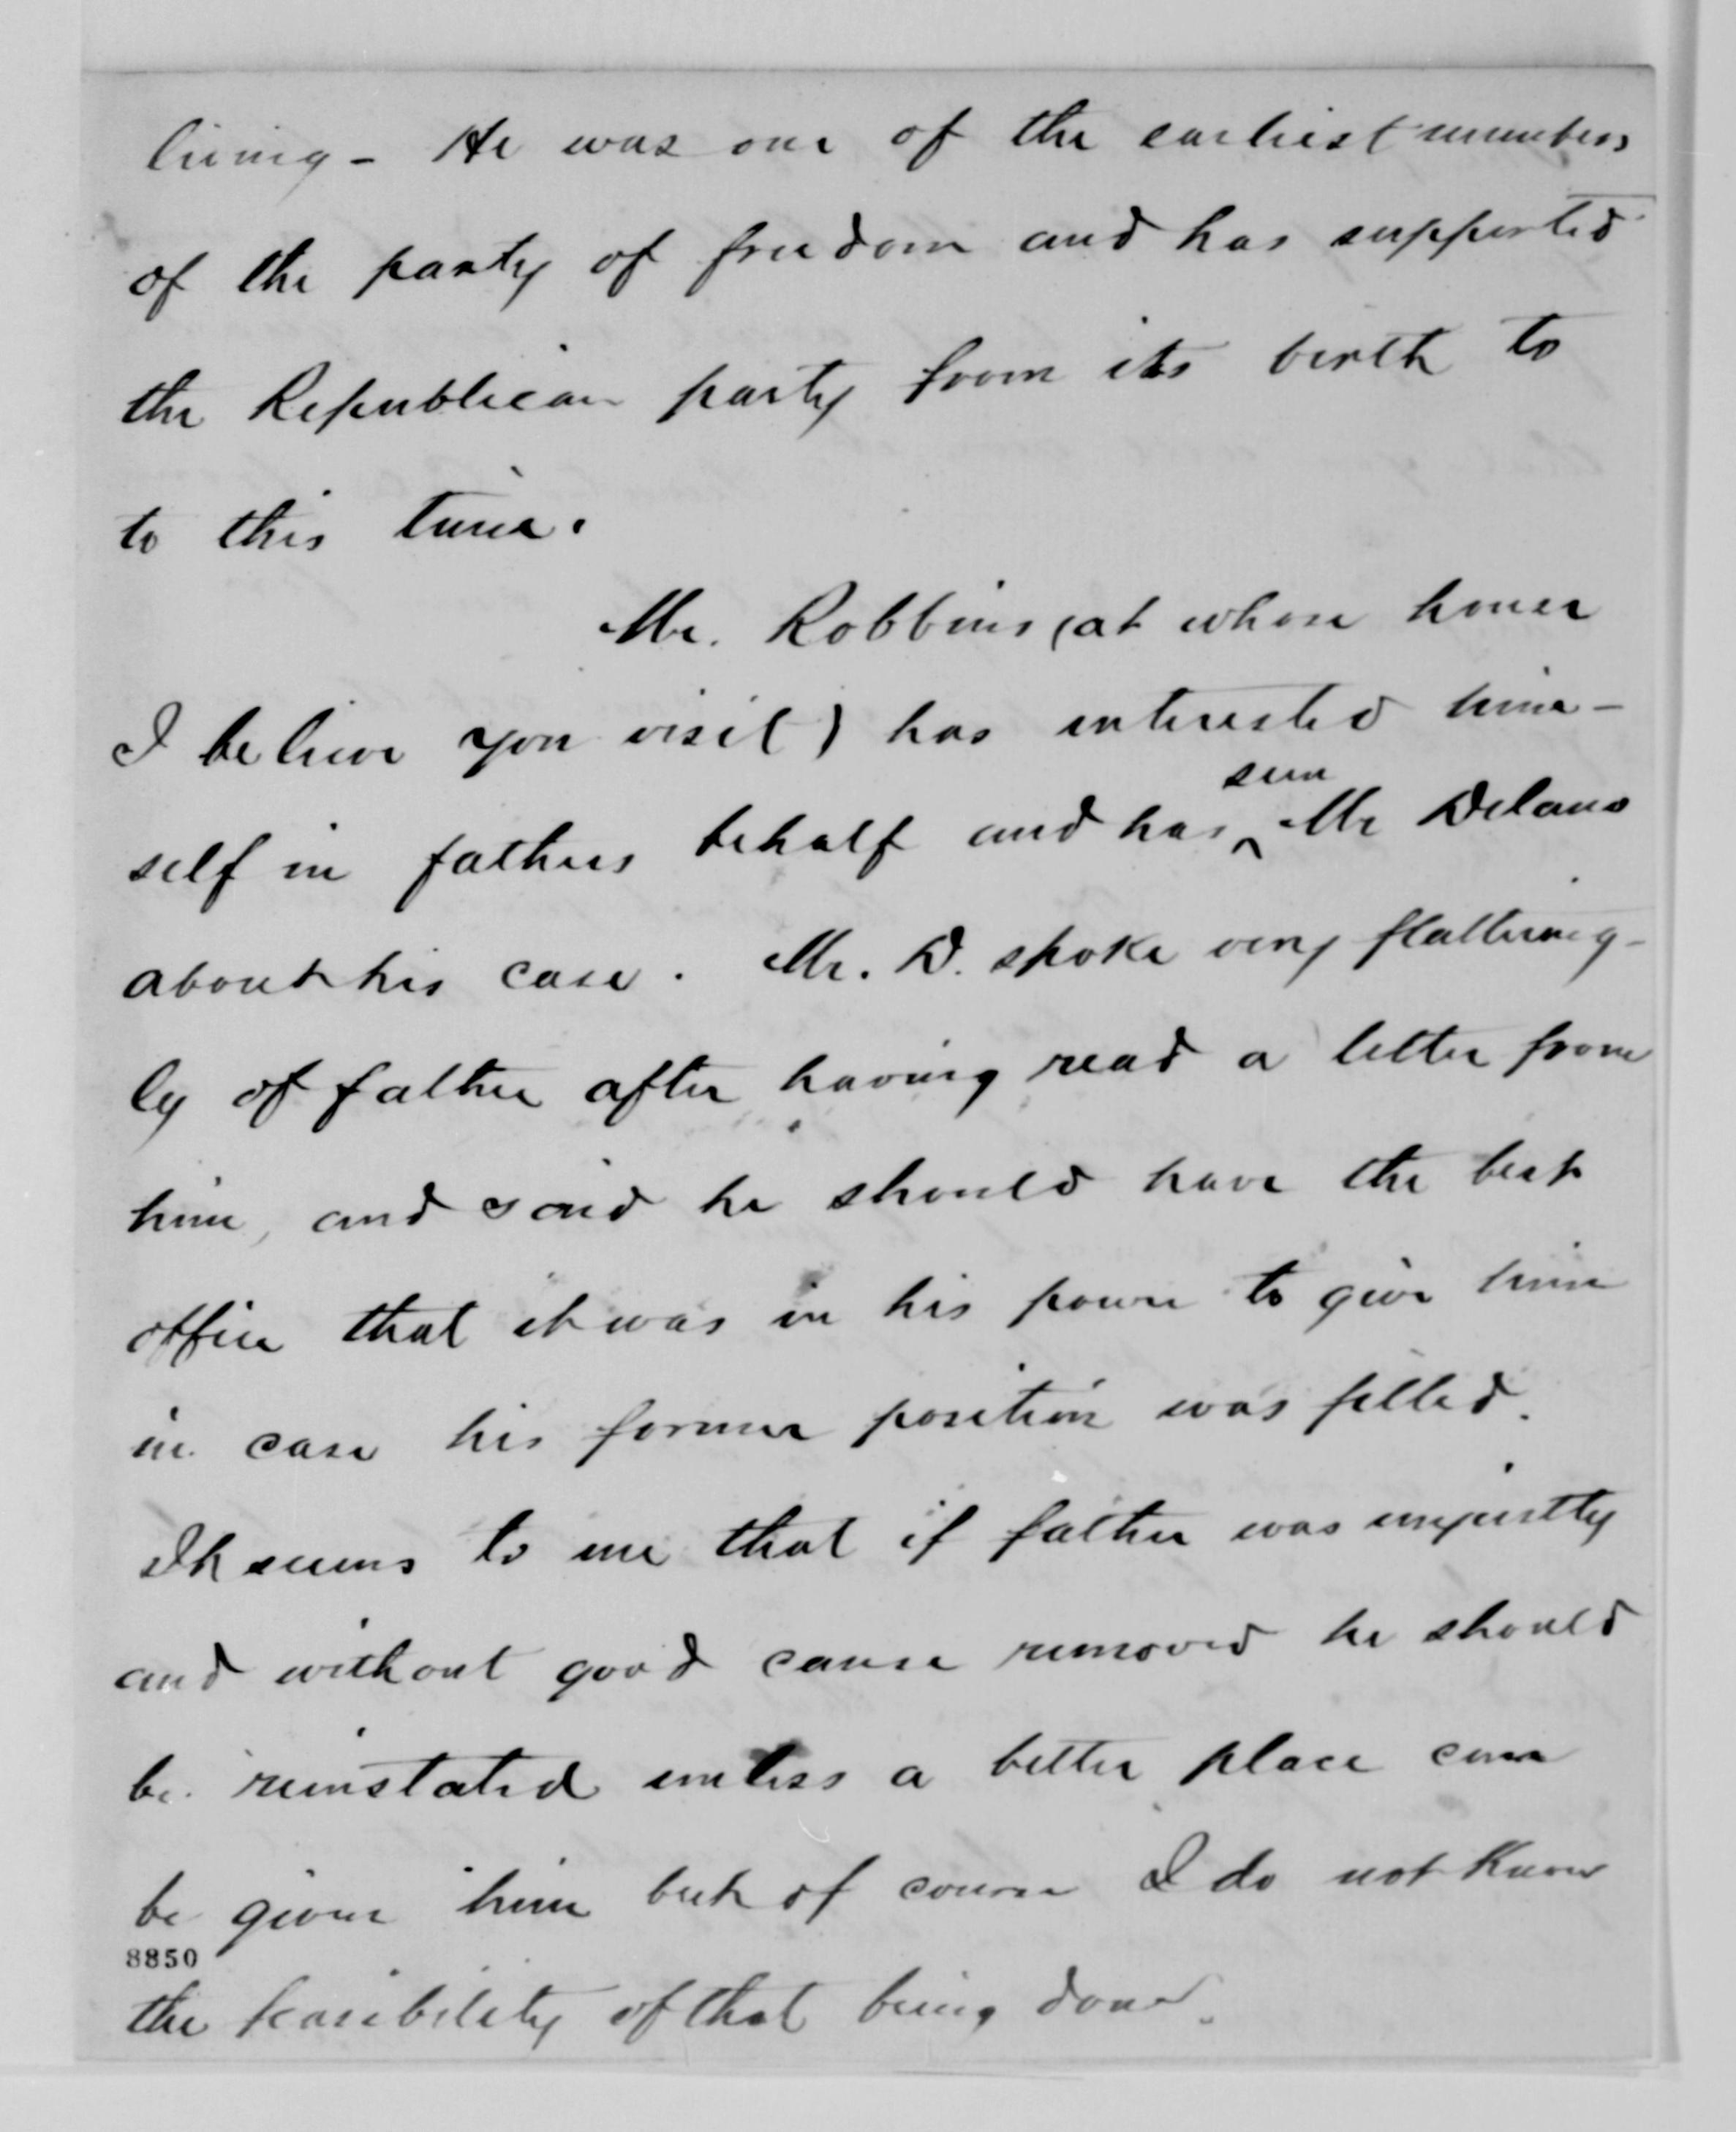 living - He was one of the earliest members
of the party of freedom and has supported
the Republican party from its birth to
to this time.
Mr. Robbins (at whose house
I believe you visit) has interested him-
seen
self in fathers behalf and has ^ Mr Delano
about his case. Mr. D. spoke very flattering-
ly of father after having read a letter from
him, and said he should have the best
office that it was in his power to give him
in case his former position was filled.
It seems to me that if father was unjustly
and without good cause removed he should
be reinstated unless a better place can
be given him but of course I do not know
8850
the feasibility of that being done.